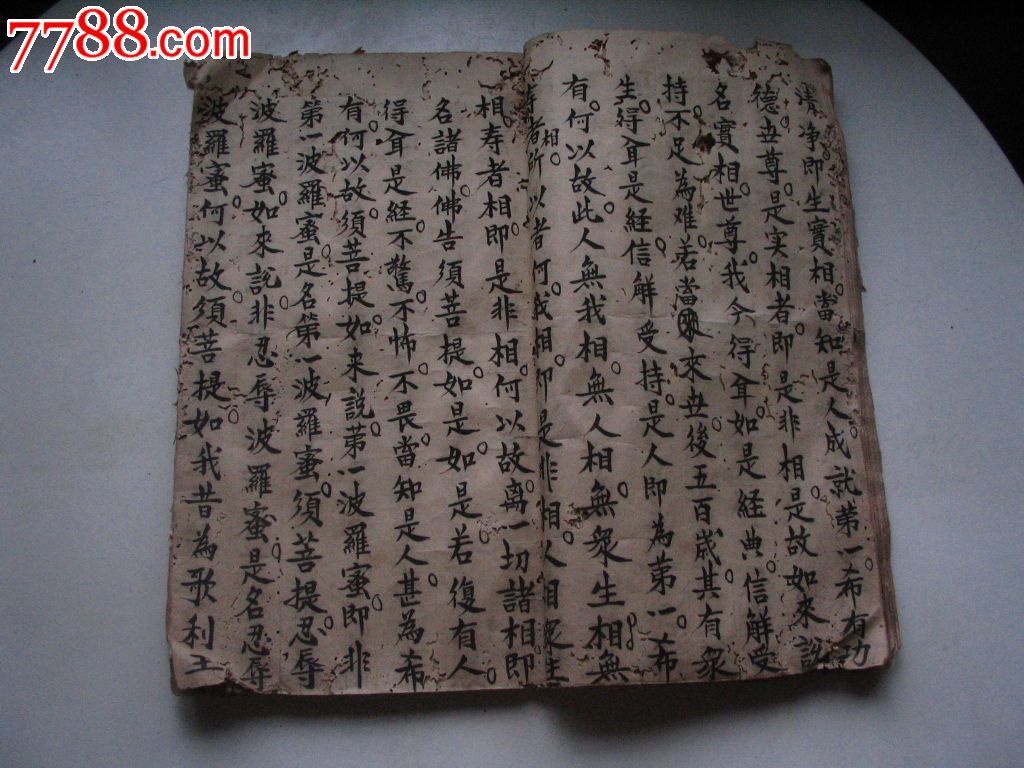 7788.com
清净即生實相。當知是人成就第一希有功
德。世尊。是实相者。即是非相。是故如來説
名實相。世尊。我今得聞如是経典。信解受
持。不足為难。若當來世。後五百歳。其有衆
生。得聞是経。信解受持。是人即為苐一希
有。何以故。此人無我相。無人相。無衆生相。無
寿者相。所以者何。我相即是非相。人相衆生
相。寿者相。即是非相。何以故。离一切諸相。即
名諸佛。佛告須菩提。如是如是。若復有人
得聞是経。不驚不怖。不畏。當知是人甚為希
有。何以故。須菩提。如来説苐一波羅蜜。即非
第一波羅蜜。是名第一波羅蜜。須菩提。忍辱
波羅蜜。如來説非忍辱波羅蜜。是名忍辱
波羅蜜。何以故。須菩提。如我昔為歌利王